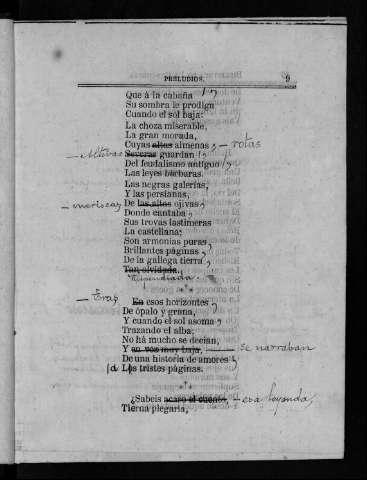 PRELUDIOS. 9
Que á la cabaña
Su sombra le prodiga
Cuando el sol baja:
La choza miserable,
La gran morada,
Cuyas altas almenas, — rotas
— Altivas Severas guardan
Del feudalismo antiguo
Las leyes bárbaras.
Las negras galerías,
Y las persianas,
— moriscas De las altas ojivas,
Donde cantaba
Sus trovas lastimeras
La castellana;
Son armonias puras,
Brillantes páginas
De la gallega tierra,
Tan olvidada.
En esos horizontes
De ópalo y grana,
Y cuando el sol asoma,
Trazando el alba;
No há mucho se decian,
Y en voz muy baja, — se narraban
De una historia de amores
(d) Las tristes páginas.
¿Sabeis acaso el cuento, — esa leyenda,
Tierna plegaria,